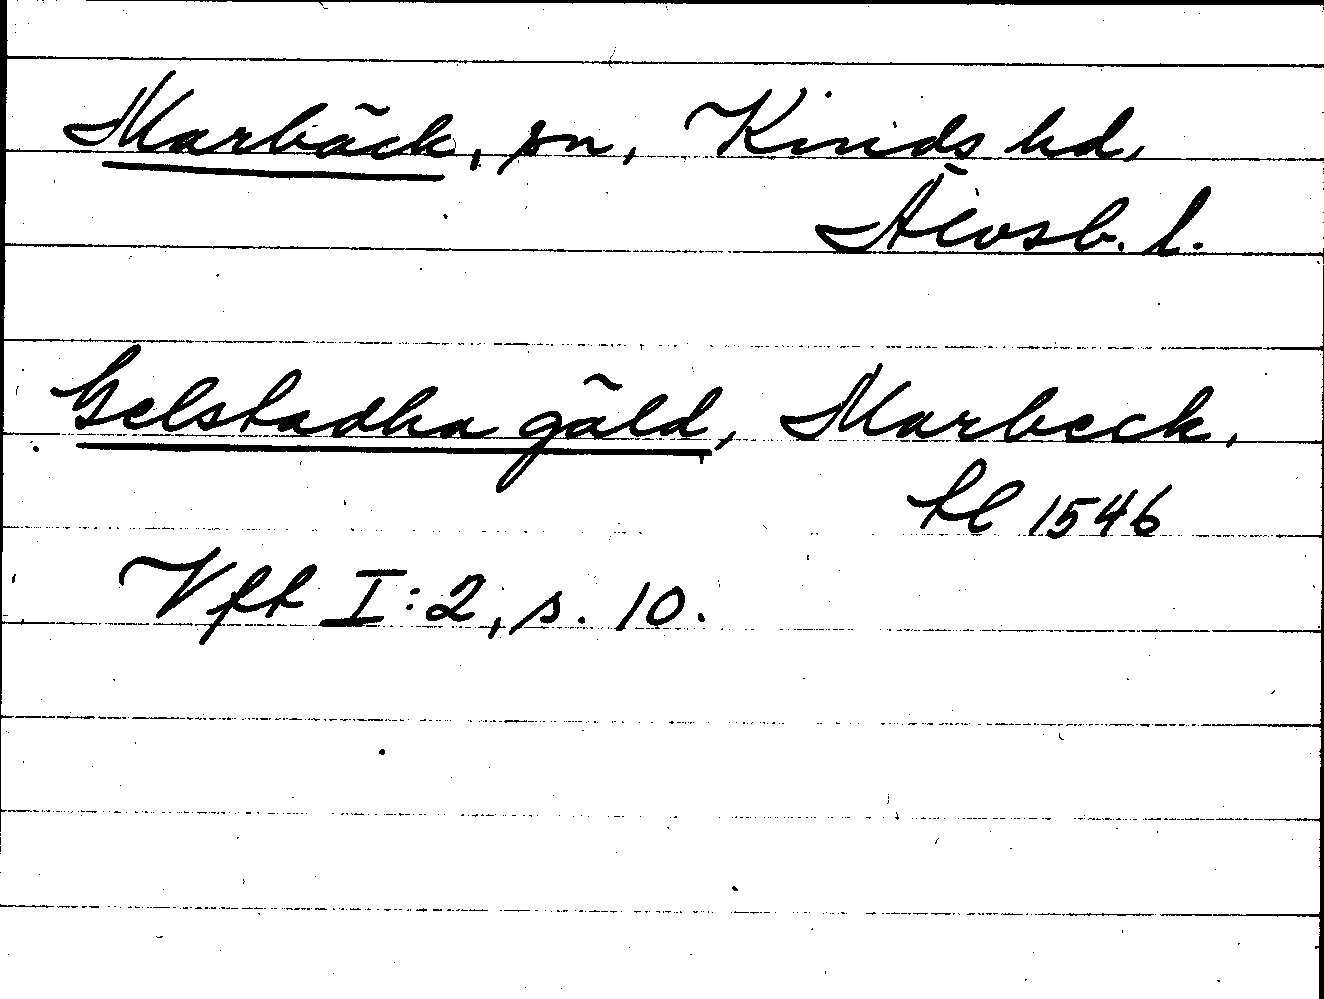 Marbäck, sn, Kinds hd,
Älvsb. l.
Gelstadha gäld, Marbeck,
hl 1546
Vft I:2, s. 10.